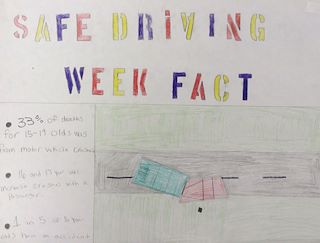 SAFE DRiViNG
WEEK FACT
• 33% of deaths
for 15-19 olds was
from motor vehicle crashes
• 16 and 17 year
increase crashes with a
passenger.
• 1 in 5 16 year
olds have an accident